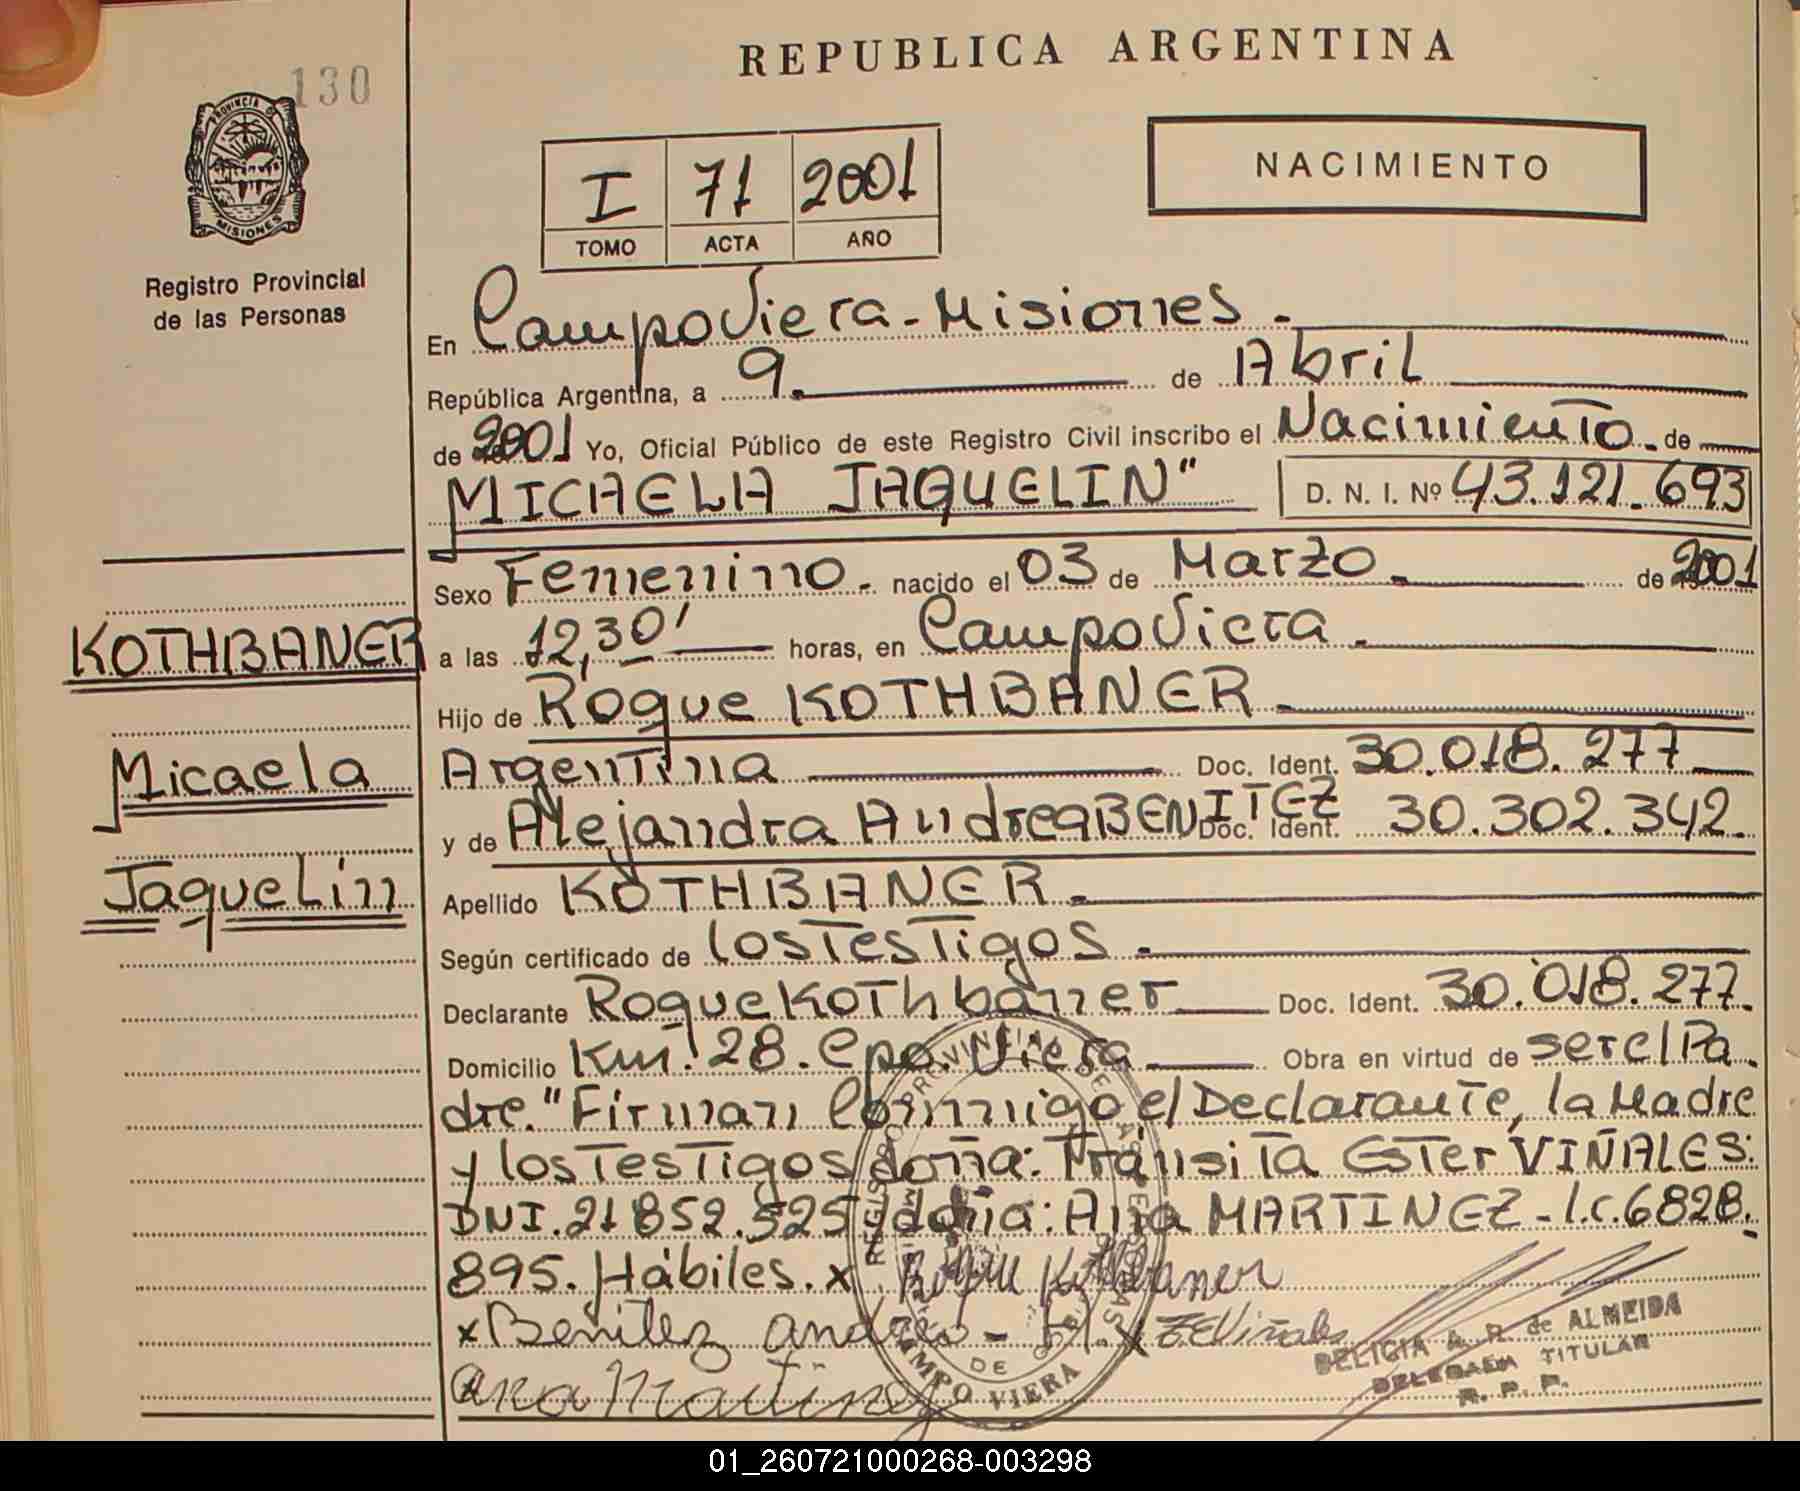 REPUBLICA ARGENTINA
130
PROVINCIA DE
MISIONES
Registro Provincial
de las Personas
I 71 2001
TOMO ACTA AÑO
NACIMIENTO
En Campo Viera - Misiones.
República Argentina, a 9. de Abril
de 2001 Yo, Oficial Público de este Registro Civil inscribo el Nacimiento. de
MICAELA JAQUELIN" D. N. I. Nº 43.121.693
Sexo Femenino. nacido el 03 de Marzo. de 2001
KOTHBANER
a las 12,30' horas, en Campo Viera.
Hijo de Roque KOTHBANER.
Micaela
Argentina Doc. Ident. 30.018.277
y de Alejandra Andrea BENITEZ Doc. Ident. 30.302.342.
Jaquelin
Apellido KOTHBANER.
Según certificado de los Testigos.
Declarante Roque Kothbaner Doc. Ident. 30.018.277.
Domicilio Km. 28. Cpo. Viera Obra en virtud de ser el Pa
dre." Firman Conmigo el Declarante, la Madre
y los Testigos doña: Tránsita Ester VIÑALES:
DNI. 21852.525 doña: Ana MARTINEZ - l.c. 6828.
895. Hábiles. x Roque Kothbaner
x Benitez Andrea - A. x T.E Viñales
x Ana Martinez
REGISTRO PROVINCIAL DE LAS PERSONAS
CAMPO VIERA
DELICIA A. R. de ALMEIDA
DELEGADA TITULAR
R. P. P.
01_260721000268-003298